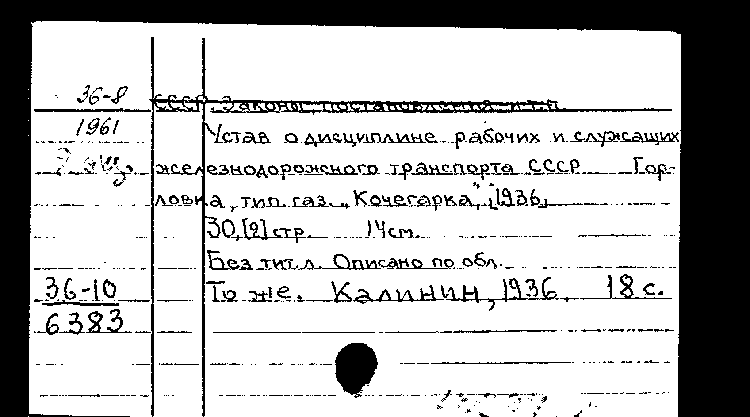 36-8 СССР. Законы, постановления и т.п.
1961 Устав о дисциплине рабочих и служащих
железнодорожного транспорта СССР Гор-
ловка, тип. газ. „Кочегарка", [1936]
30,[2] стр. 14 см.
Без тит. л. Описано по обл.
36-10 То же. Калинин, 1936. 18 с.
6383